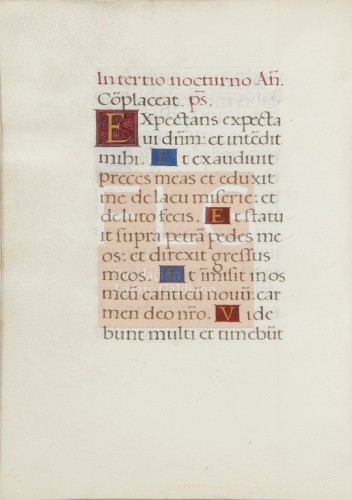 In tertio nocturno Añ.
Cõplaceat. ps̃.
EXpectans expecta
ui dñm: et intẽdit
mihi. Et exaudiuit
preces meas et eduxit
me de lacu miserie: et
de luto fecis. Et statu
it supra petrã pedes me
os: et direxit gressus
meos. Et ĩmisit in os
meũ canticũ nouũ: car
men deo nr̃o. Vide
bunt multi et timebũt